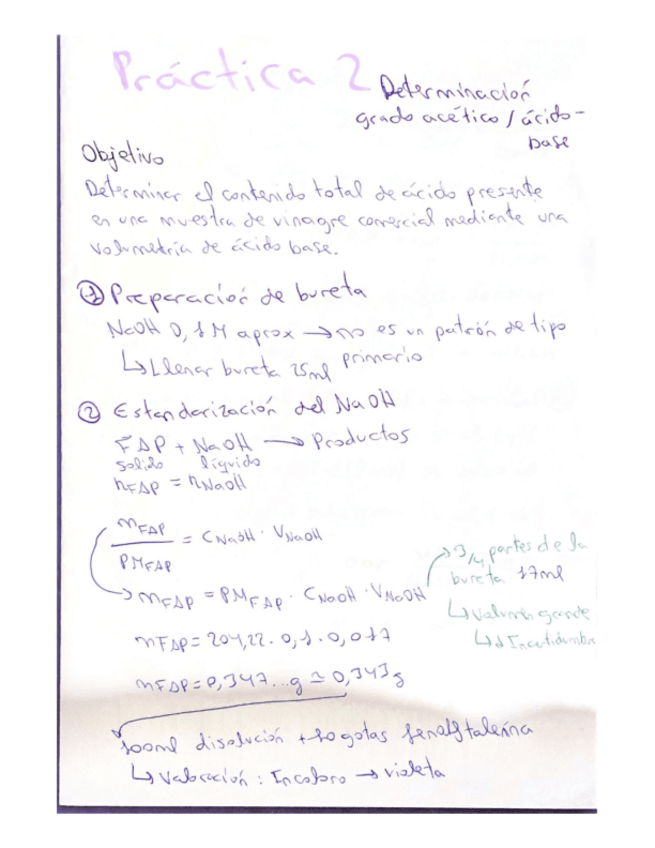 Práctica 2
Determinación
grado acético / ácido-
base
Objetivo
Determinar el contenido total de ácido presente
en una muestra de vinagre comercial mediante una
volumetría de ácido base.
① Preparación de bureta
NaOH 0,1M aprox → no es un patrón de tipo
primario
↳ Llenar bureta 25ml
② Estandarización del NaOH
FAP + NaOH → Productos
solido líquido
nFAP = nNaOH
mFAP / PMFAP = CNaOH · VNaOH
→ mFAP = PMFAP · CNaOH · VNaOH
→ 3/4 partes de la
bureta 17ml
↳ Volumen grande
↳ ↓ Incertidumbre
mFAP = 204,22 · 0,1 · 0,017
mFAP = 0,347...g ≃ 0,343g
100ml disolución + 10 gotas fenolftaleína
↳ Valoración: Incoloro → violeta